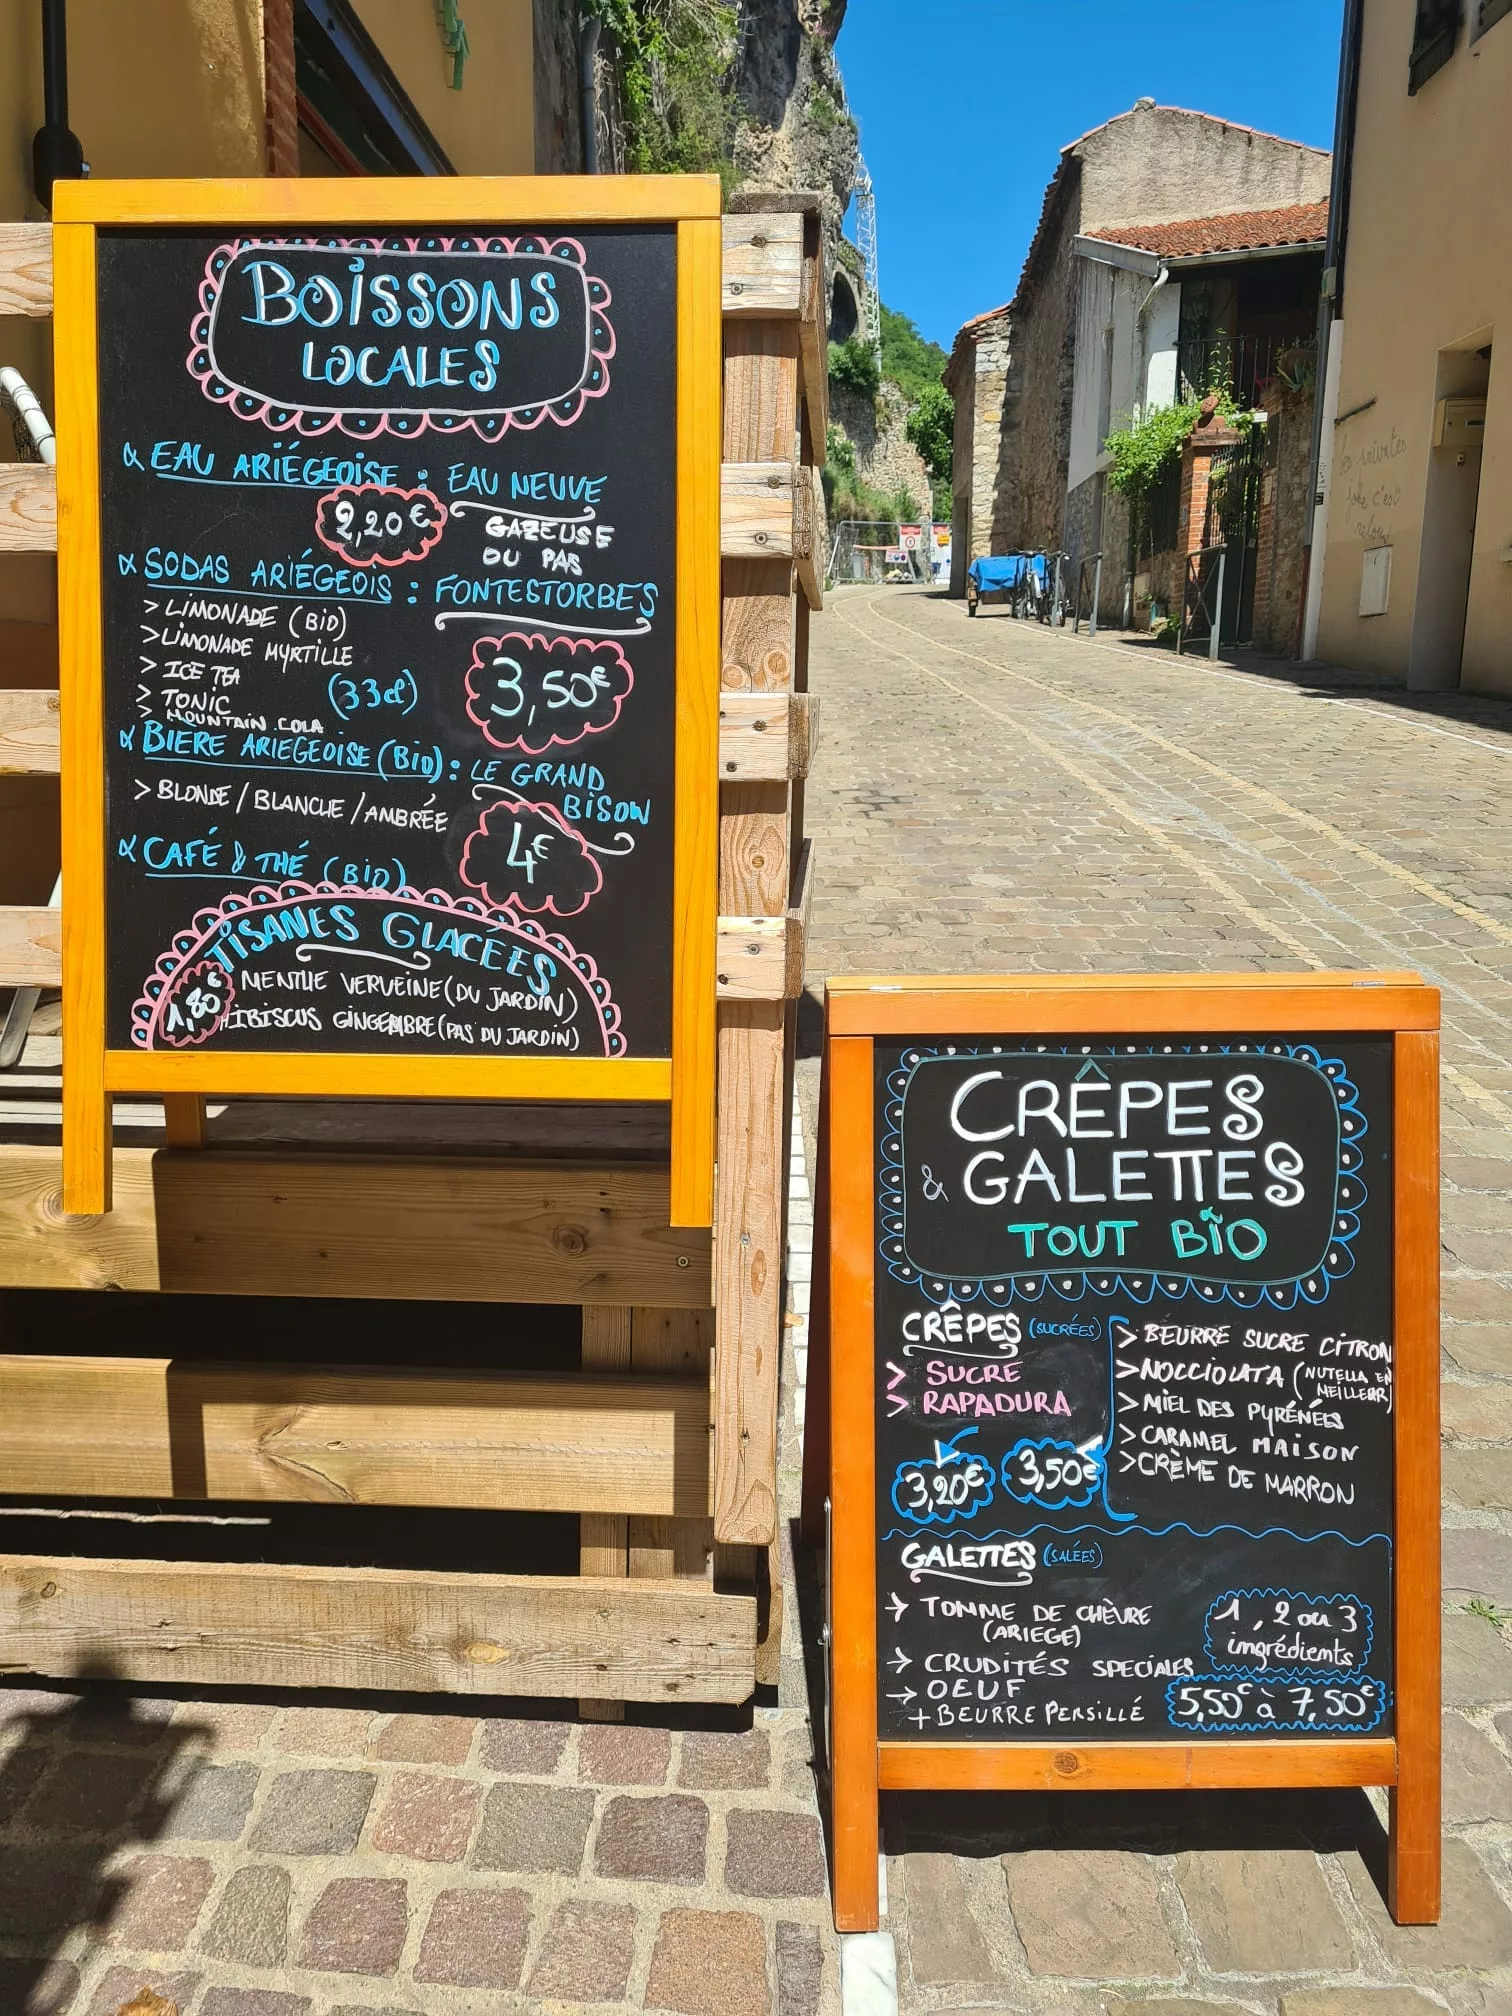 BOISSONS
LOCALES
EAU ARIÉGEOISE : EAU NEUVE
2,20€
GAZEUSE
OU PAS
SODAS ARIÉGEOIS : FONTESTORBES
> LIMONADE (BIO)
> LIMONADE MYRTILLE
> ICE TEA
> TONIC
> MOUNTAIN COLA
(33cl)
3,50€
BIÈRE ARIEGEOISE (BIO) : LE GRAND
BISON
> BLONDE / BLANCHE / AMBRÉE
4€
CAFÉ & THÉ (BIO)
TISANES GLACÉES
1,80€
MENTHE VERVEINE (DU JARDIN)
HIBISCUS GINGEMBRE (PAS DU JARDIN)
CRÊPES
& GALETTES
TOUT BIO
CRÊPES (SUCRÉES)
> SUCRE
> RAPADURA
3,20€
3,50€
> BEURRE SUCRE CITRON
> NOCCIOLATA (NUTELLA EN
MEILLEUR)
> MIEL DES PYRÉNÉES
> CARAMEL MAISON
> CRÈME DE MARRON
GALETTES (SALÉES)
→ TOMME DE CHÈVRE
(ARIEGE)
→ CRUDITÉS SPECIALES
→ OEUF
+ BEURRE PERSILLÉ
1, 2 ou 3
ingrédients
5,50€ à 7,50€